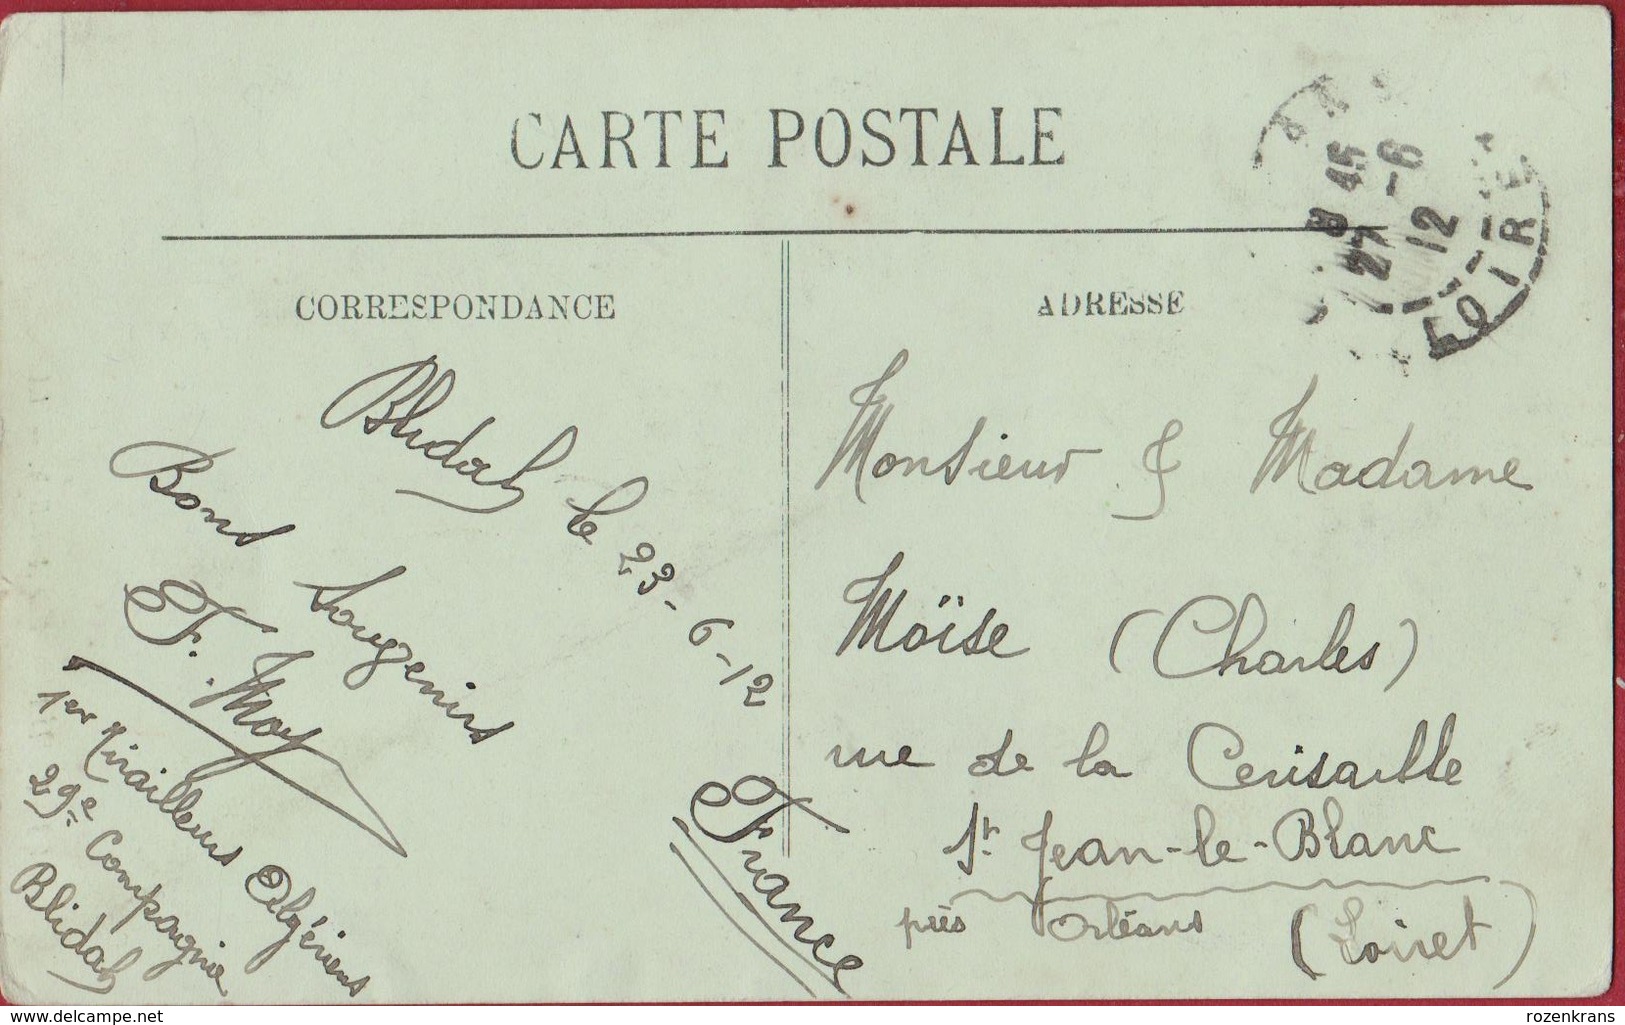 CARTE POSTALE
8 45
27 -6
12
LOIRET
CORRESPONDANCE
ADRESSE
Blidah le 23-6-12
Bons Souvenirs
F. Moy
1er Tirailleurs Algériens
29e Compagnie
Blidah
Monsieur & Madame
Moïse (Charles)
rue de la Cerisaille
St. Jean-le-Blanc
près Orléans (Loiret)
France
www.delcampe.net
rozenkrans